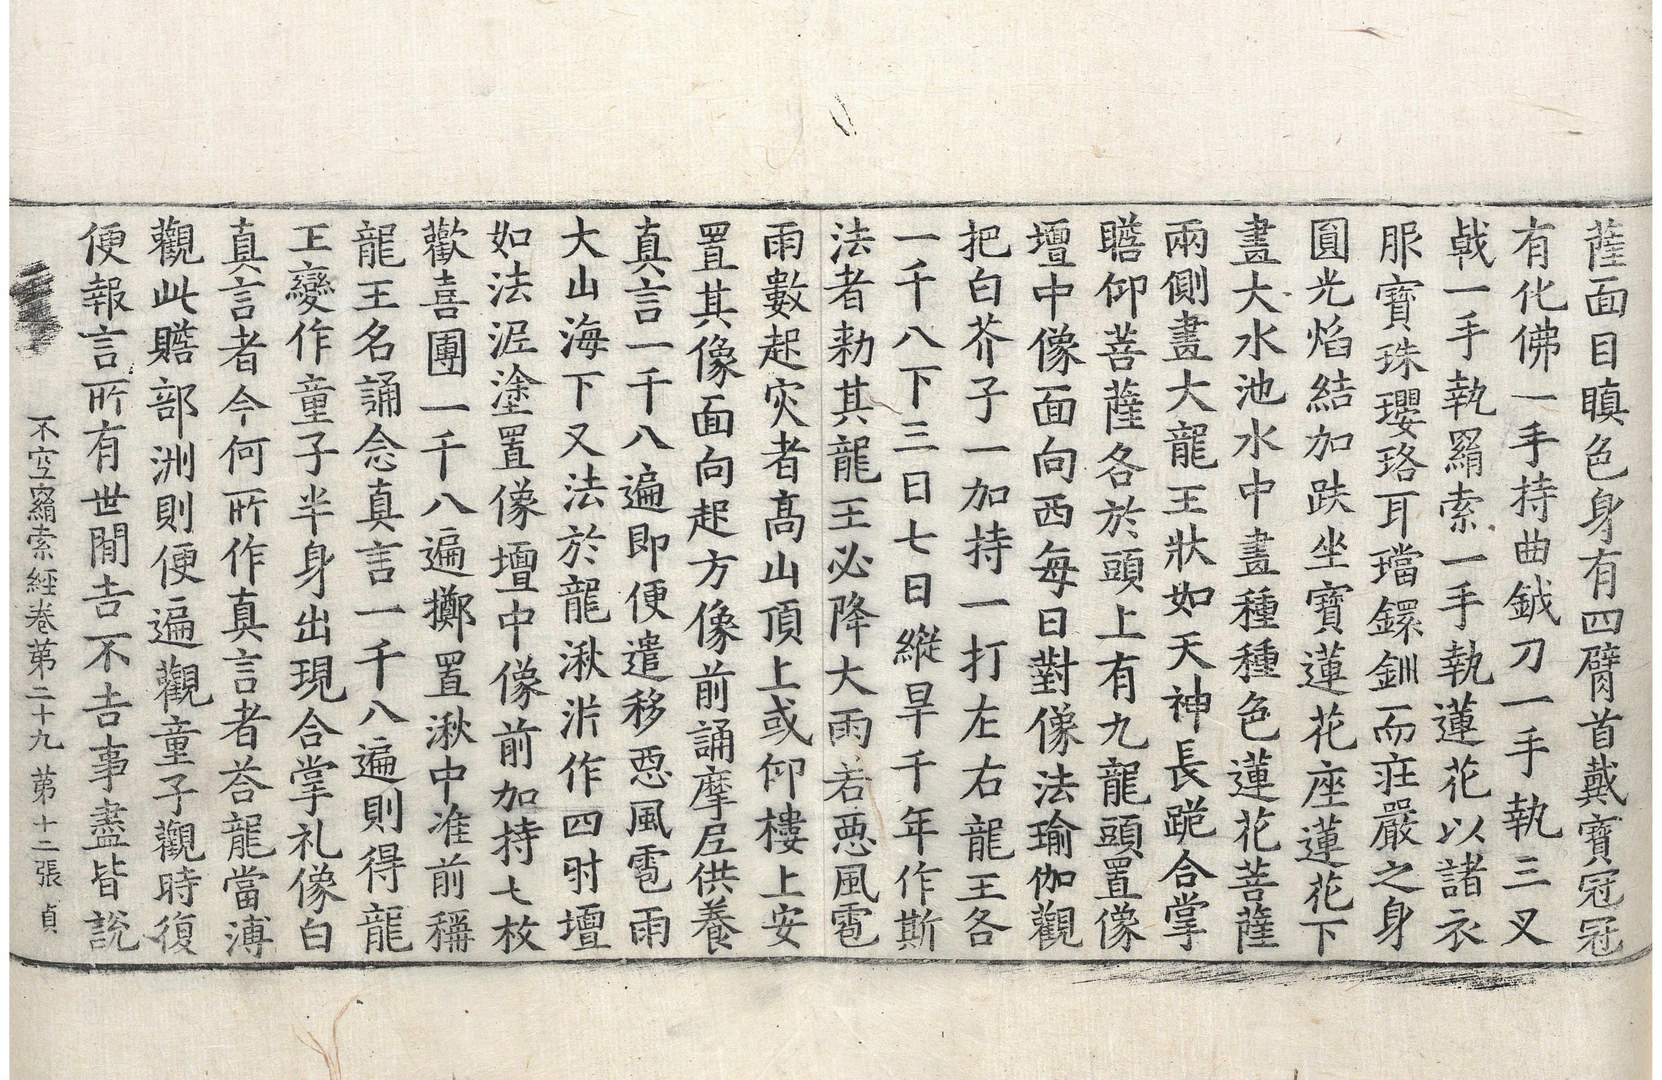 薩面目瞋色身有四臂首戴寶冠冠
有化佛一手持曲鉞刀一手執三叉
戟一手執羂索一手執蓮花以諸衣
服寶珠瓔珞耳璫鐶釧而莊嚴之身
圓光焰結加趺坐寶蓮花座蓮花下
畫大水池水中畫種種色蓮花菩薩
兩側畫大龍王狀如天神長跪合掌
瞻仰菩薩各於頭上有九龍頭置像
壇中像面向西每日對像法瑜伽觀
把白芥子一加持一打左右龍王各
一千八下三日七日縱旱千年作斯
法者勑其龍王必降大雨若惡風雹
雨數起灾者高山頂上或仰樓上安
置其像面向起方像前誦摩𡰱供養
真言一千八遍即便遣移惡風雹雨
大山海下又法於龍湫泲作四肘壇
如法泥塗置像壇中像前加持七枚
歡喜團一千八遍擲置湫中准前稱
龍王名誦念真言一千八遍則得龍
王變作童子半身出現合掌礼像白
真言者今何所作真言者荅龍當溥
觀此贍部洲則便遍觀童子觀時復
便報言所有世閒吉不吉事盡皆說
不空羂索經卷第二十九 第十二張 貞